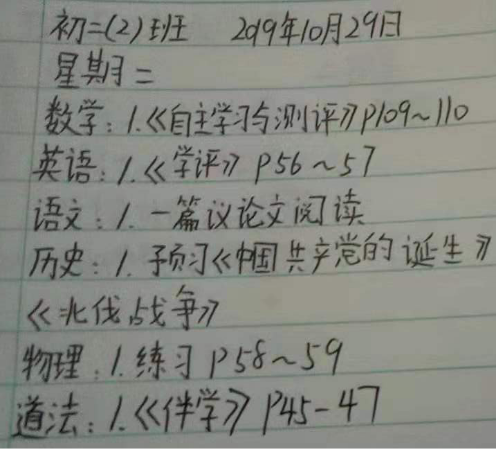 初二(2)班 2019年10月29日
星期二
数学:1.《自主学习与测评》P109~110
英语:1.《学评》P56~57
语文:1.一篇议论文阅读
历史:1.预习《中国共产党的诞生》
《北伐战争》
物理:1.练习P58~59
道法:1.《伴学》P45-47